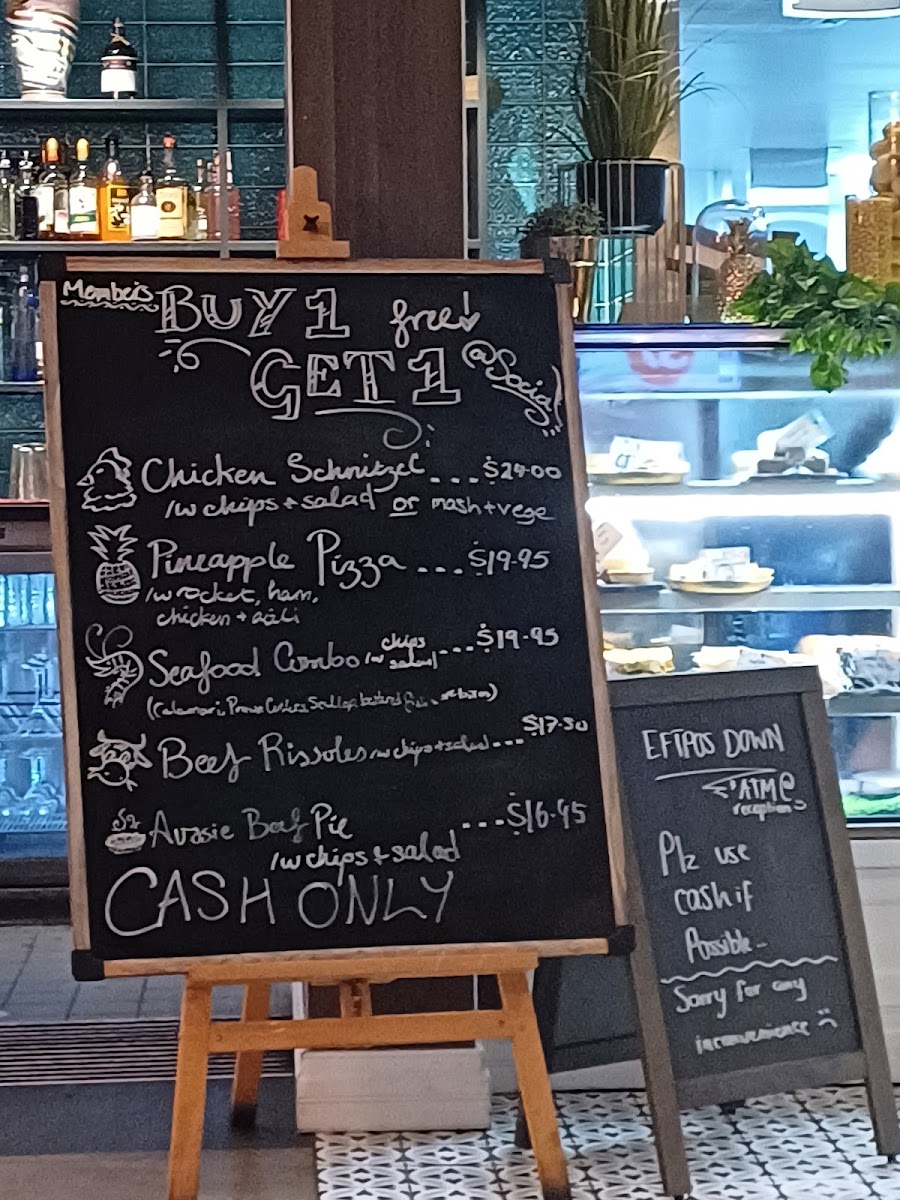 Members BUY 1 free!
GET 1 @Social
Chicken Schnitzel ...$24.00
/w chips + salad or mash + vege
Pineapple Pizza ...$19.95
/w rocket, ham,
chicken + aoli
Seafood Combo /w chips salad ...$19.95
(Calamari, Prawn Cutlers, Scallop, battered
Beef Rissoles /w chips + salad ...$17.50
Aussie Beef Pie ...$16.95
/w chips + salad
CASH ONLY
EFTPOS DOWN
ATM@
reception
Plz use
cash if
Possible..
Sorry for any
inconvenience :(